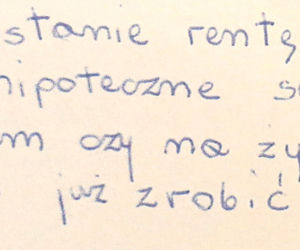 stanie rentę
hipoteczne s
m czy na ży
już zrobić